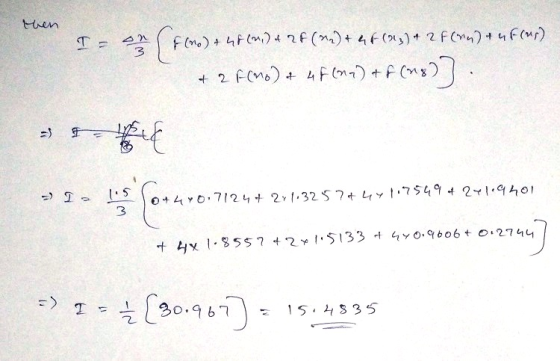 then
I = Δx/3 [ f(x₀) + 4f(x₁) + 2f(x₂) + 4f(x₃) + 2f(x₄) + 4f(x₅)
+ 2f(x₆) + 4f(x₇) + f(x₈) ] .
=> I = 1.5/3 [
=> I = 1.5/3 [ 0+4×0.7124+ 2×1.3257+4×1.7549+2×1.9401
+ 4× 1.8557+2×1.5133 + 4×0.9606+0.2744 ]
=> I = 1/2 [ 30.967 ] = 15.4835